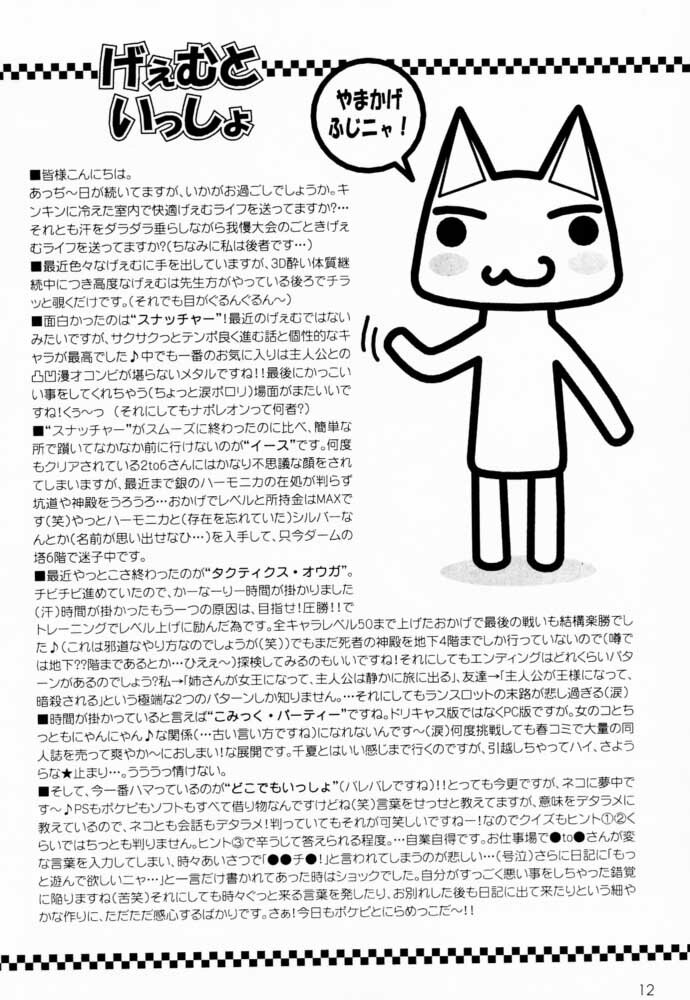 げぇむと
いっしょ
やまかげ
ふじニャ！
■皆様こんにちは。
あっぢ～日が続いてますが、いかがお過ごしでしょうか。キ
ンキンに冷えた室内で快適げぇむライフを送ってますか?…
それとも汗をダラダラ垂らしながら我慢大会のごときげぇ
むライフを送ってますか?(ちなみに私は後者です…)
■最近色々なげぇむに手を出していますが、3D酔い体質継
続中につき高度なげぇむは先生方がやっている後ろでチラ
ッと覗くだけです。(それでも目がぐるんぐるん～)
■面白かったのは“スナッチャー”!最近のげぇむではない
みたいですが、サクサクっとテンポ良く進む話と個性的なキ
ャラが最高でした♪中でも一番のお気に入りは主人公との
凸凹漫才コンビが堪らないメタルですね!!最後にかっこい
い事をしてくれちゃう(ちょっと涙ポロリ)場面がまたいいで
すね!くぅ～っ　(それにしてもナポレオンって何者?)
■“スナッチャー”がスムーズに終わったのに比べ、簡単な
所で躓いてなかなか前に行けないのが“イース”です。何度
もクリアされている2to6さんにはかなり不思議な顔をされ
てしまいますが、最近まで銀のハーモニカの在処が判らず
坑道や神殿をうろうろ…おかげでレベルと所持金はMAXで
す(笑)やっとハーモニカと(存在を忘れていた)シルバーなん
とか(名前が思い出せなひ…)を入手して、只今ダームの
塔6階で迷子中です。
■最近やっとこさ終わったのが“タクティクス・オウガ”。
チビチビ進めていたので、かーなーりー時間が掛かりました
(汗)時間が掛かったもう一つの原因は、目指せ!圧勝!!で
トレーニングでレベル上げに励んだ為です。全キャラレベル50まで上げたおかげで最後の戦いも結構楽勝でし
た♪(これは邪道なやり方なのでしょうが(笑))でもまだ死者の神殿を地下4階までしか行っていないので(噂で
は地下??階まであるとか…ひえぇ～)探検してみるのもいいですね!それにしてもエンディングはどれくらいパタ
ーンがあるのでしょう?私→「姉さんが女王になって、主人公は静かに旅に出る」、友達→「主人公が王様になって、
暗殺される」という極端な2つのパターンしか知りません。…それにしてもランスロットの末路が悲し過ぎる(涙)
■時間が掛かっていると言えば“こみっく・パーティー”ですね。ドリキャス版ではなくPC版ですが。女のコとちっ
ともにゃんにゃん♪な関係(…古い言い方ですね)になれないんです～(涙)何度挑戦しても春コミで大量の同
人誌を売って爽やか～におしまい!な展開です。千夏とはいい感じまで行くのですが、引越しちゃってハイ、さよう
らな★止まり…。うううっ情けない。
■そして、今一番ハマっているのが“どこでもいっしょ”(バレバレですね)!!とっても今更ですが、ネコに夢中で
す～♪PSもポケピもソフトもすべて借り物なんですけどね(笑)言葉をせっせと教えてますが、意味をデタラメに
教えているので、ネコとも会話もデタラメ!判っていてもそれが可笑しいですねー!なのでクイズもヒント①②く
らいではちっとも判りません。ヒント③で辛うじて答えられる程度。…自業自得です。お仕事場で●to●さんが変
な言葉を入力してしまい、時々あいさつで「●●チ●!」と言われてしまうのが悲しい…(号泣)さらに日記に「もっ
と遊んで欲しいニャ…」と一言だけ書かれてあった時はショックでした。自分がすっごく悪い事をしちゃった錯覚
に陥りますね(苦笑)それにしても時々ぐっと来る言葉を発したり、お別れした後も日記に出て来たりという細や
かな作りに、ただただ感心するばかりです。さぁ!今日もポケピとにらめっこだ～!!
12